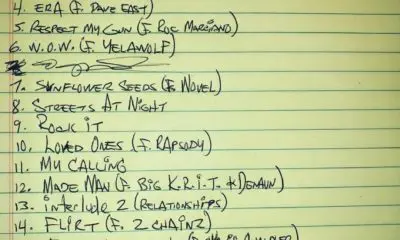 4. ERA (F. DAVE EAST)
5. RESPECT MY GUN (F. ROC MARCIANO)
6. W.O.W. (F. YELAWOLF)
7. SUNFLOWER SEEDS (F. NOVEL)
8. STREETS AT NIGHT
9. ROCK IT
10. LOVED ONES (F. RAPSODY)
11. MY CALLING
12. MADE MAN (F. BIG K.R.I.T. & DENAUN)
13. interlude 2 (RELATIONSHIPS)
14. FLIRT (F. 2 CHAINZ)